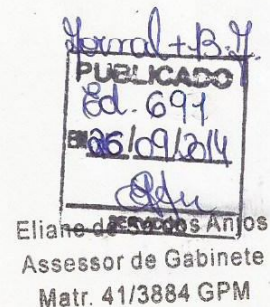 Jornal + B.J.
PUBLICADO
Ed. 691
EM 26/09/2014
Eliane de Anjos
Assessor de Gabinete
Matr. 41/3884 GPM